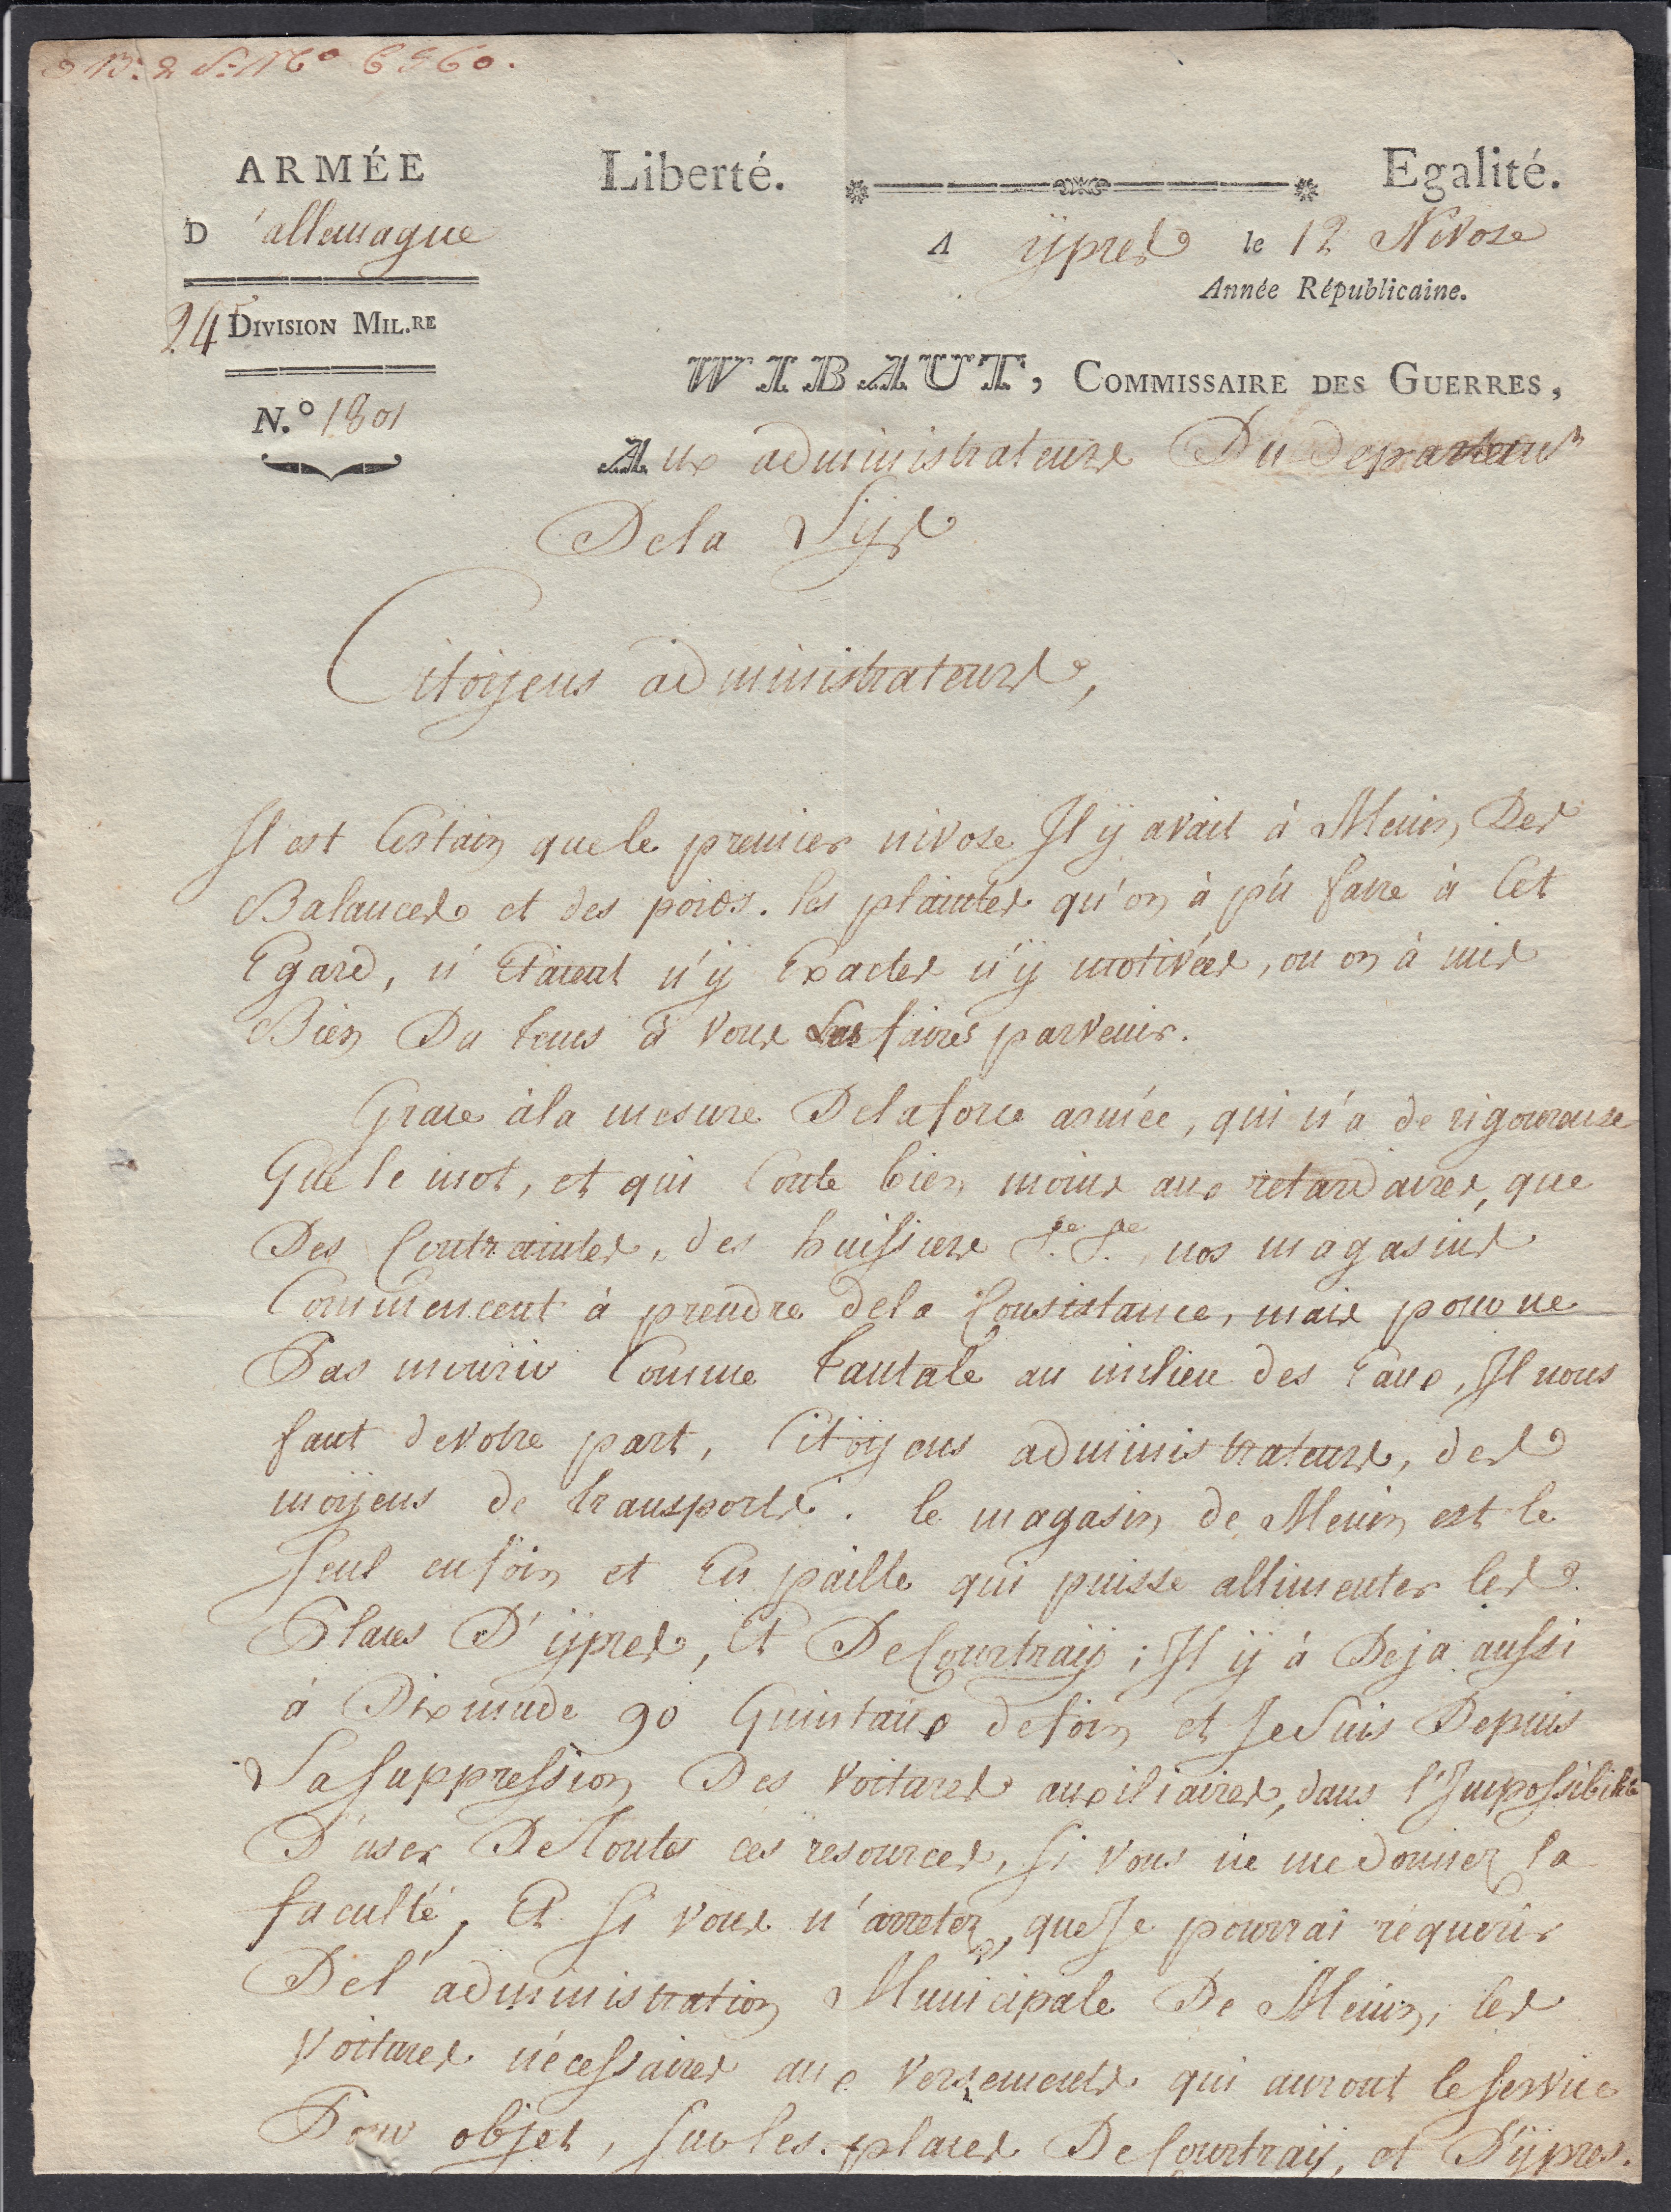 B: 2 S: N.º 6560.
ARMÉE
D'allemagne
24e DIVISION MIL.RE
N.º 1801
Liberté. Egalité.
A ÿpres le 12 Nivose
Année Républicaine.
WIBAUT, COMMISSAIRE DES GUERRES,
Aux administrateurs Du departemt
De la Lys
Citoÿens administrateurs,
Il est Certain que le premier nivose Il ÿ avait à Menin, Des
Balances et des poids. les plaintes qu'on à pû faire à Cet
Egard, n'Etaient n'ÿ Exactes n'ÿ motivées, ou on à mis
Bien Du tems à vous Les faires parvenir.
Grace à la mesure De la force armée, qui n'a de rigoureuse
Que le mot, et qui Coute bien moins aux retardaires, que
Des Contraintes, des huissiers &.e &.e nos magasins
Commencent à prendre de la Consistance, mais pour ne
Pas mourir Comme tantale au milieu des Eaux, Il nous
faut de votre part, Citoÿens administrateurs, des
moÿens de transports. le magasin de Menin est le
Seul en foin et En paille qui puisse allimenter les
Places D'ÿpres, Et De Courtraÿ; Il ÿ à Deja aussi
à Dixmude 90 Quintaux de foin et Je Suis Depuis
La Suppression Des voitures auxiliaires, dans l'Impossibilité
D'user De Toutes ces resources, Si vous ne me donnez la
faculté, Et Si vous n'arretez, que Je pourrai réquerir
De l'administration Municipale De Menin, les
voitures nécessaires aux versements qui auront le Service
Pour objet, Sur les places De Courtraÿ, et D'ÿpres.